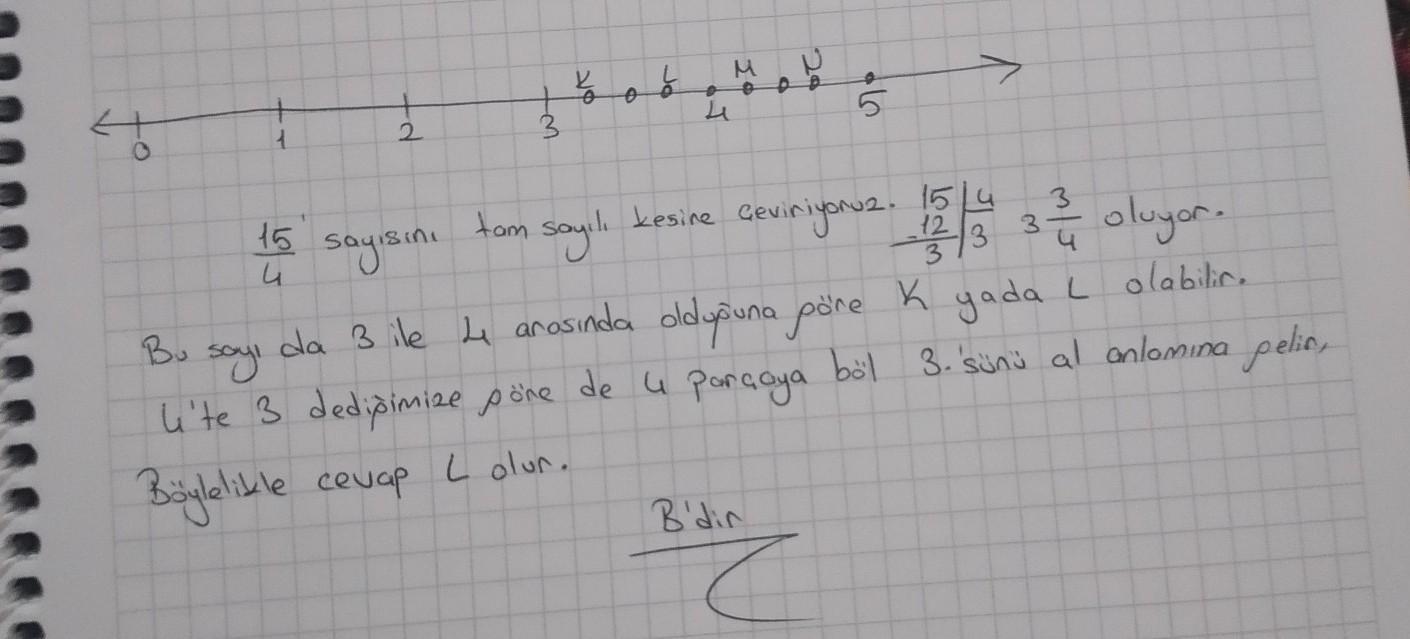 K L M N
0 1 2 3 4 5
15/4 sayısını tam sayılı kesire çeviriyoruz. 15 | 4 -12 3 | 3 3 3/4 oluyor.
Bu sayı da 3 ile 4 arasında olduğuna göre K yada L olabilir.
4'te 3 dediğimize göre de 4 parçaya böl 3.'sünü al anlamına gelir,
Böylelikle cevap L olur.
B'dir